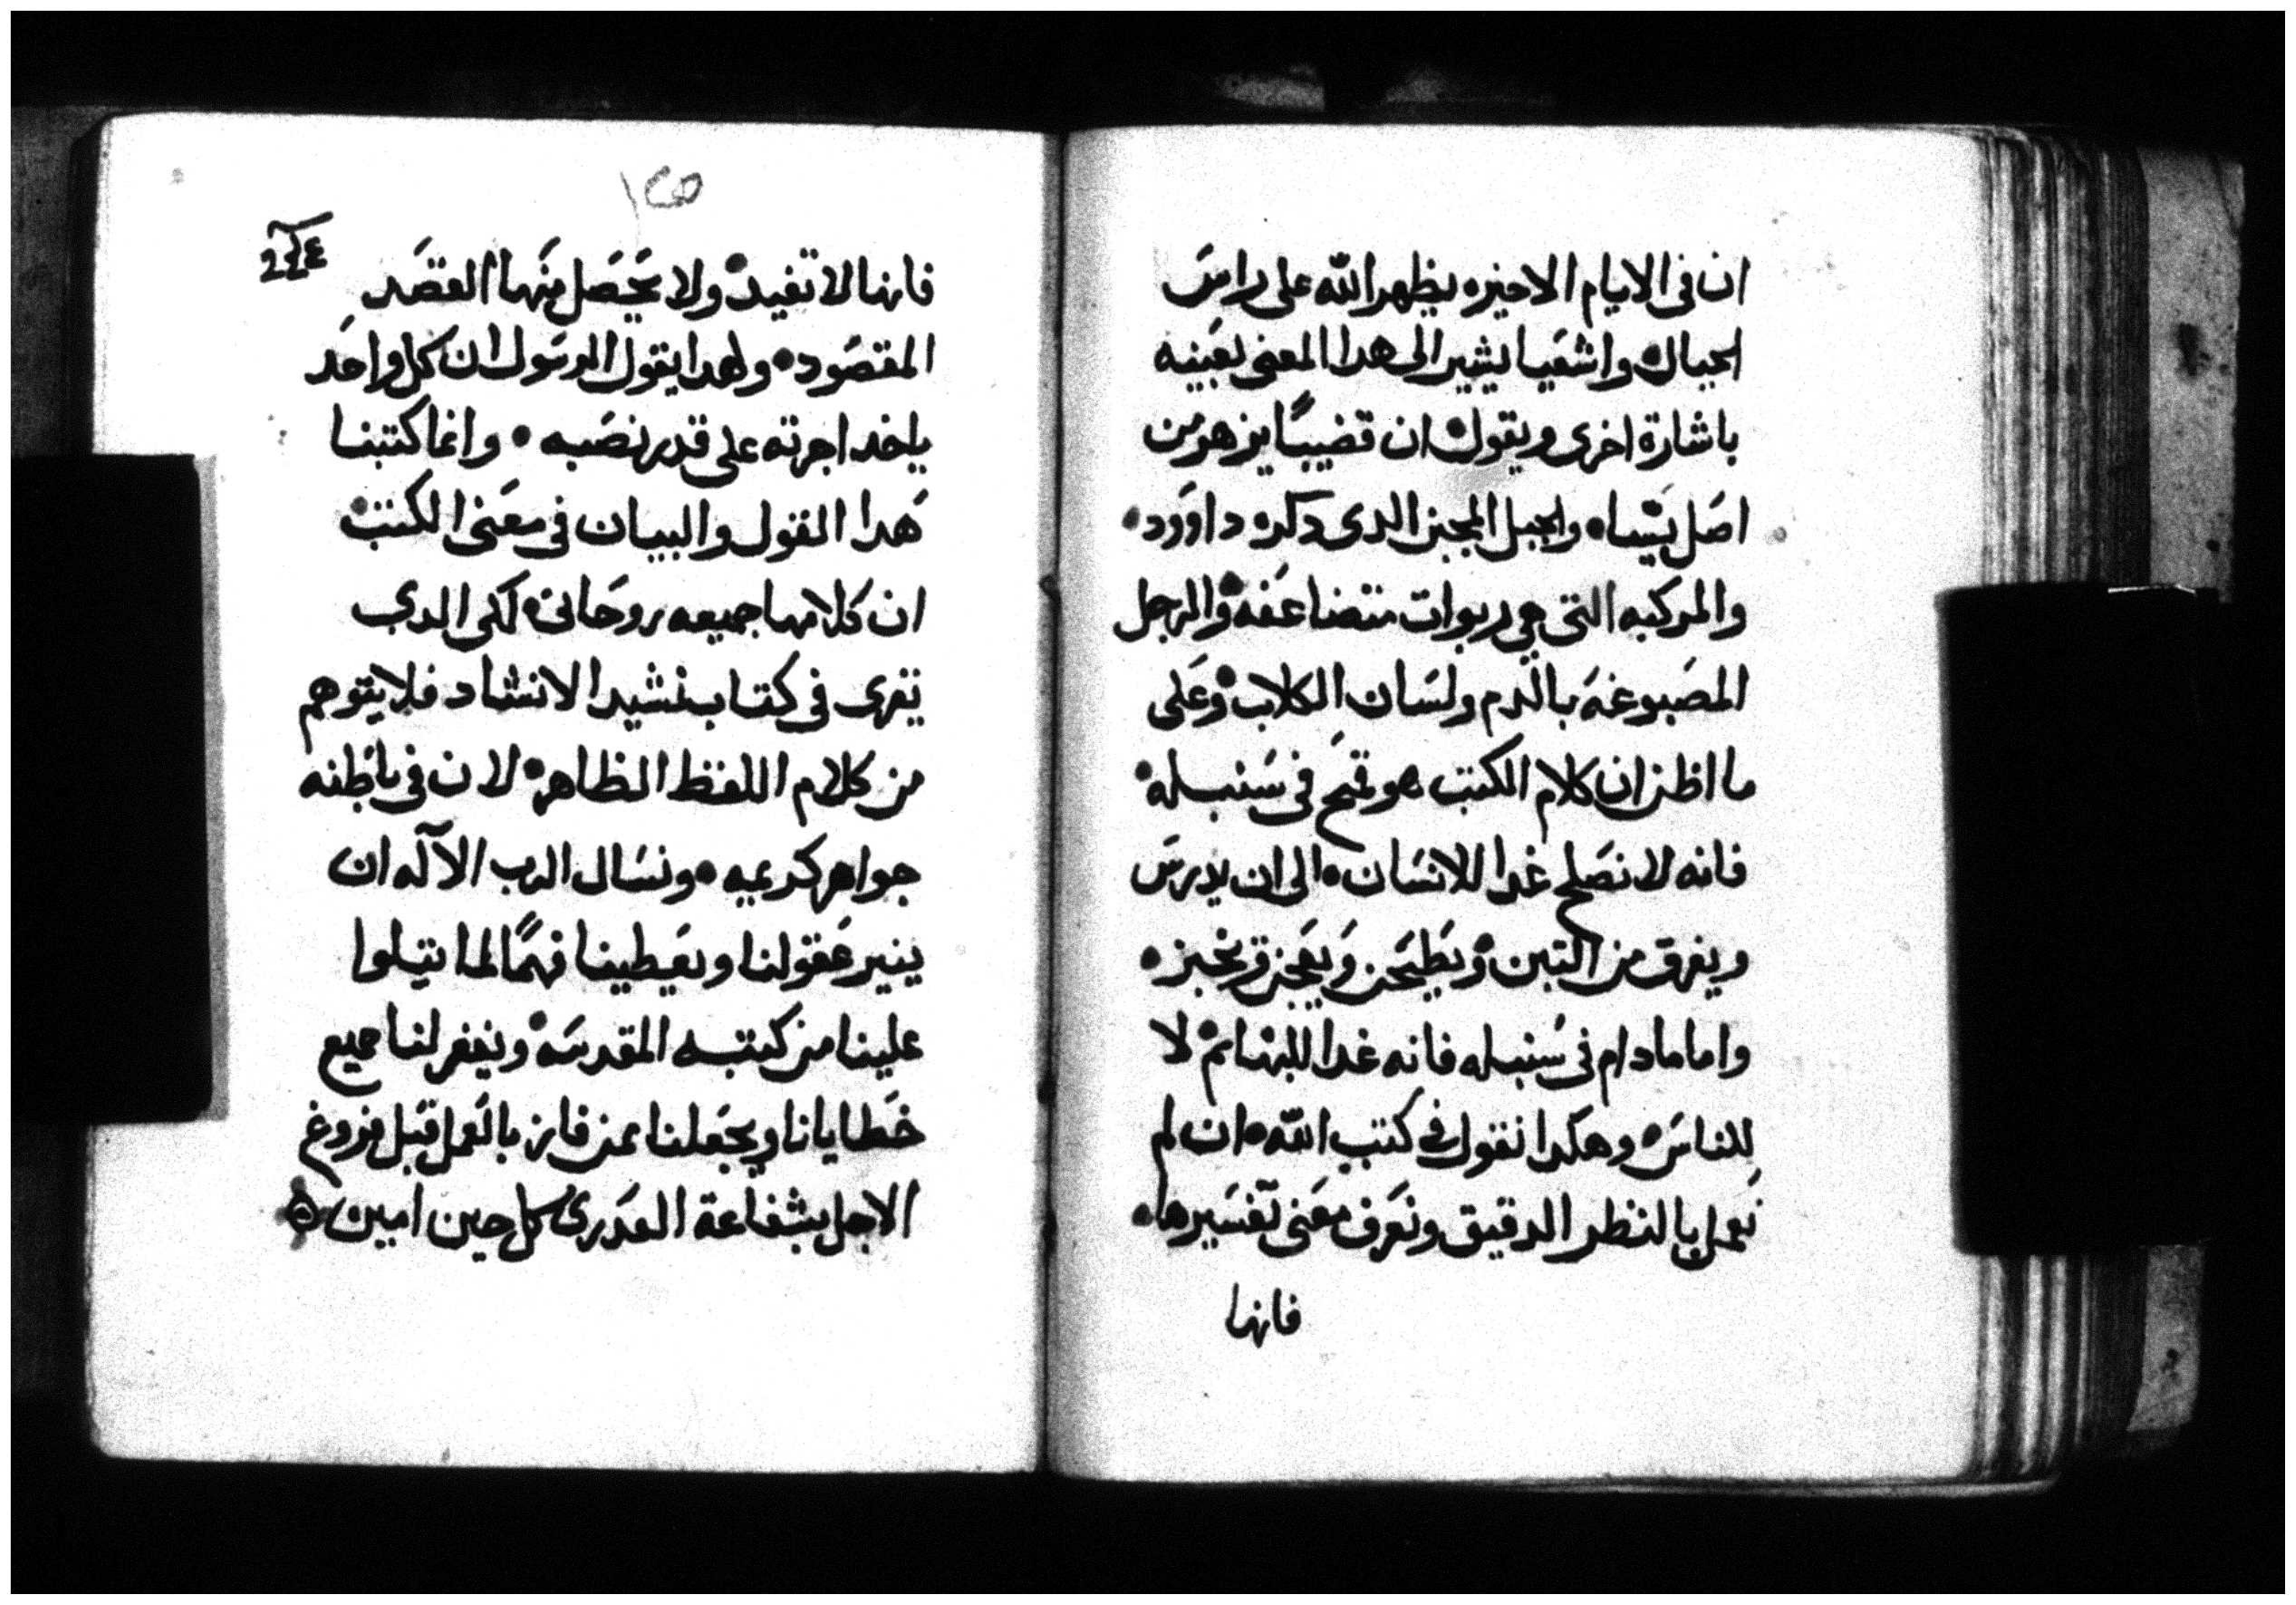 ان فى الايام الاخيره يظهر الله على راس
الجبال واشعيا يشير الى هدا المعنى بعينه
باشارة اخرى ويقول ان قضيبًا يزهر من
اصل يسا ه والجبل المجبن الدى دكره داوود ه
والمركبه التى هى ربوات متضاعفه والرجل
المصبوغه بالدم ولسان الكلاب وعلى
ما اظن ان كلام الكتب هو قمح فى سنبله
فانه لا تصلح غدا للانسان ه الى ان يدرس
ويفرق من التبن ويطحن ويعجن ويخبز ه
واما مادام فى سنبله فانه غدا للبهائم لا
للناس ه وهكدا نقول فى كتب الله ه ان لم
نعمل بالنظر الدقيق ونعرف معنى تفسيرها ه
فانها
١٣٥
فانها لا تفيد ولا يحصل منها القصد
المقصود ه ولهدا يقول الرسول ان كل واحد
ياخد اجرته على قدر نصبه ه وانما كتبنا
هدا القول والبيان فى معنى الكتب
ان كلامها جميعه روحانى لكى الدى
يقرى فى كتاب نشيد الانشاد فلا يتوهم
من كلام اللفظ الظاهر لان فى باطنه
جواهر كريمه ه ونسال الرب الآله ان
ينير عقولنا ويعطينا فهمًا لما يتلوا
علينا من كتبه المقدسه ويغفر لنا جميع
خطايانا ويجعلنا ممن فاز بالعمل قبل فروغ
الاجل بشفاعة العدرى كل حين امين ه